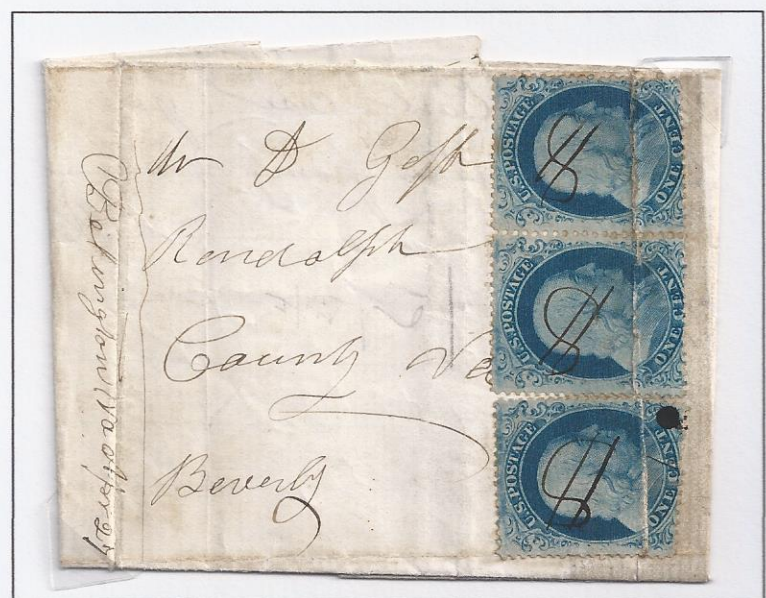 Mr D Goff
Randolph
County Va
Beverly
U.S. POSTAGE
ONE CENT
U.S. POSTAGE
ONE CENT
U.S. POSTAGE
ONE CENT